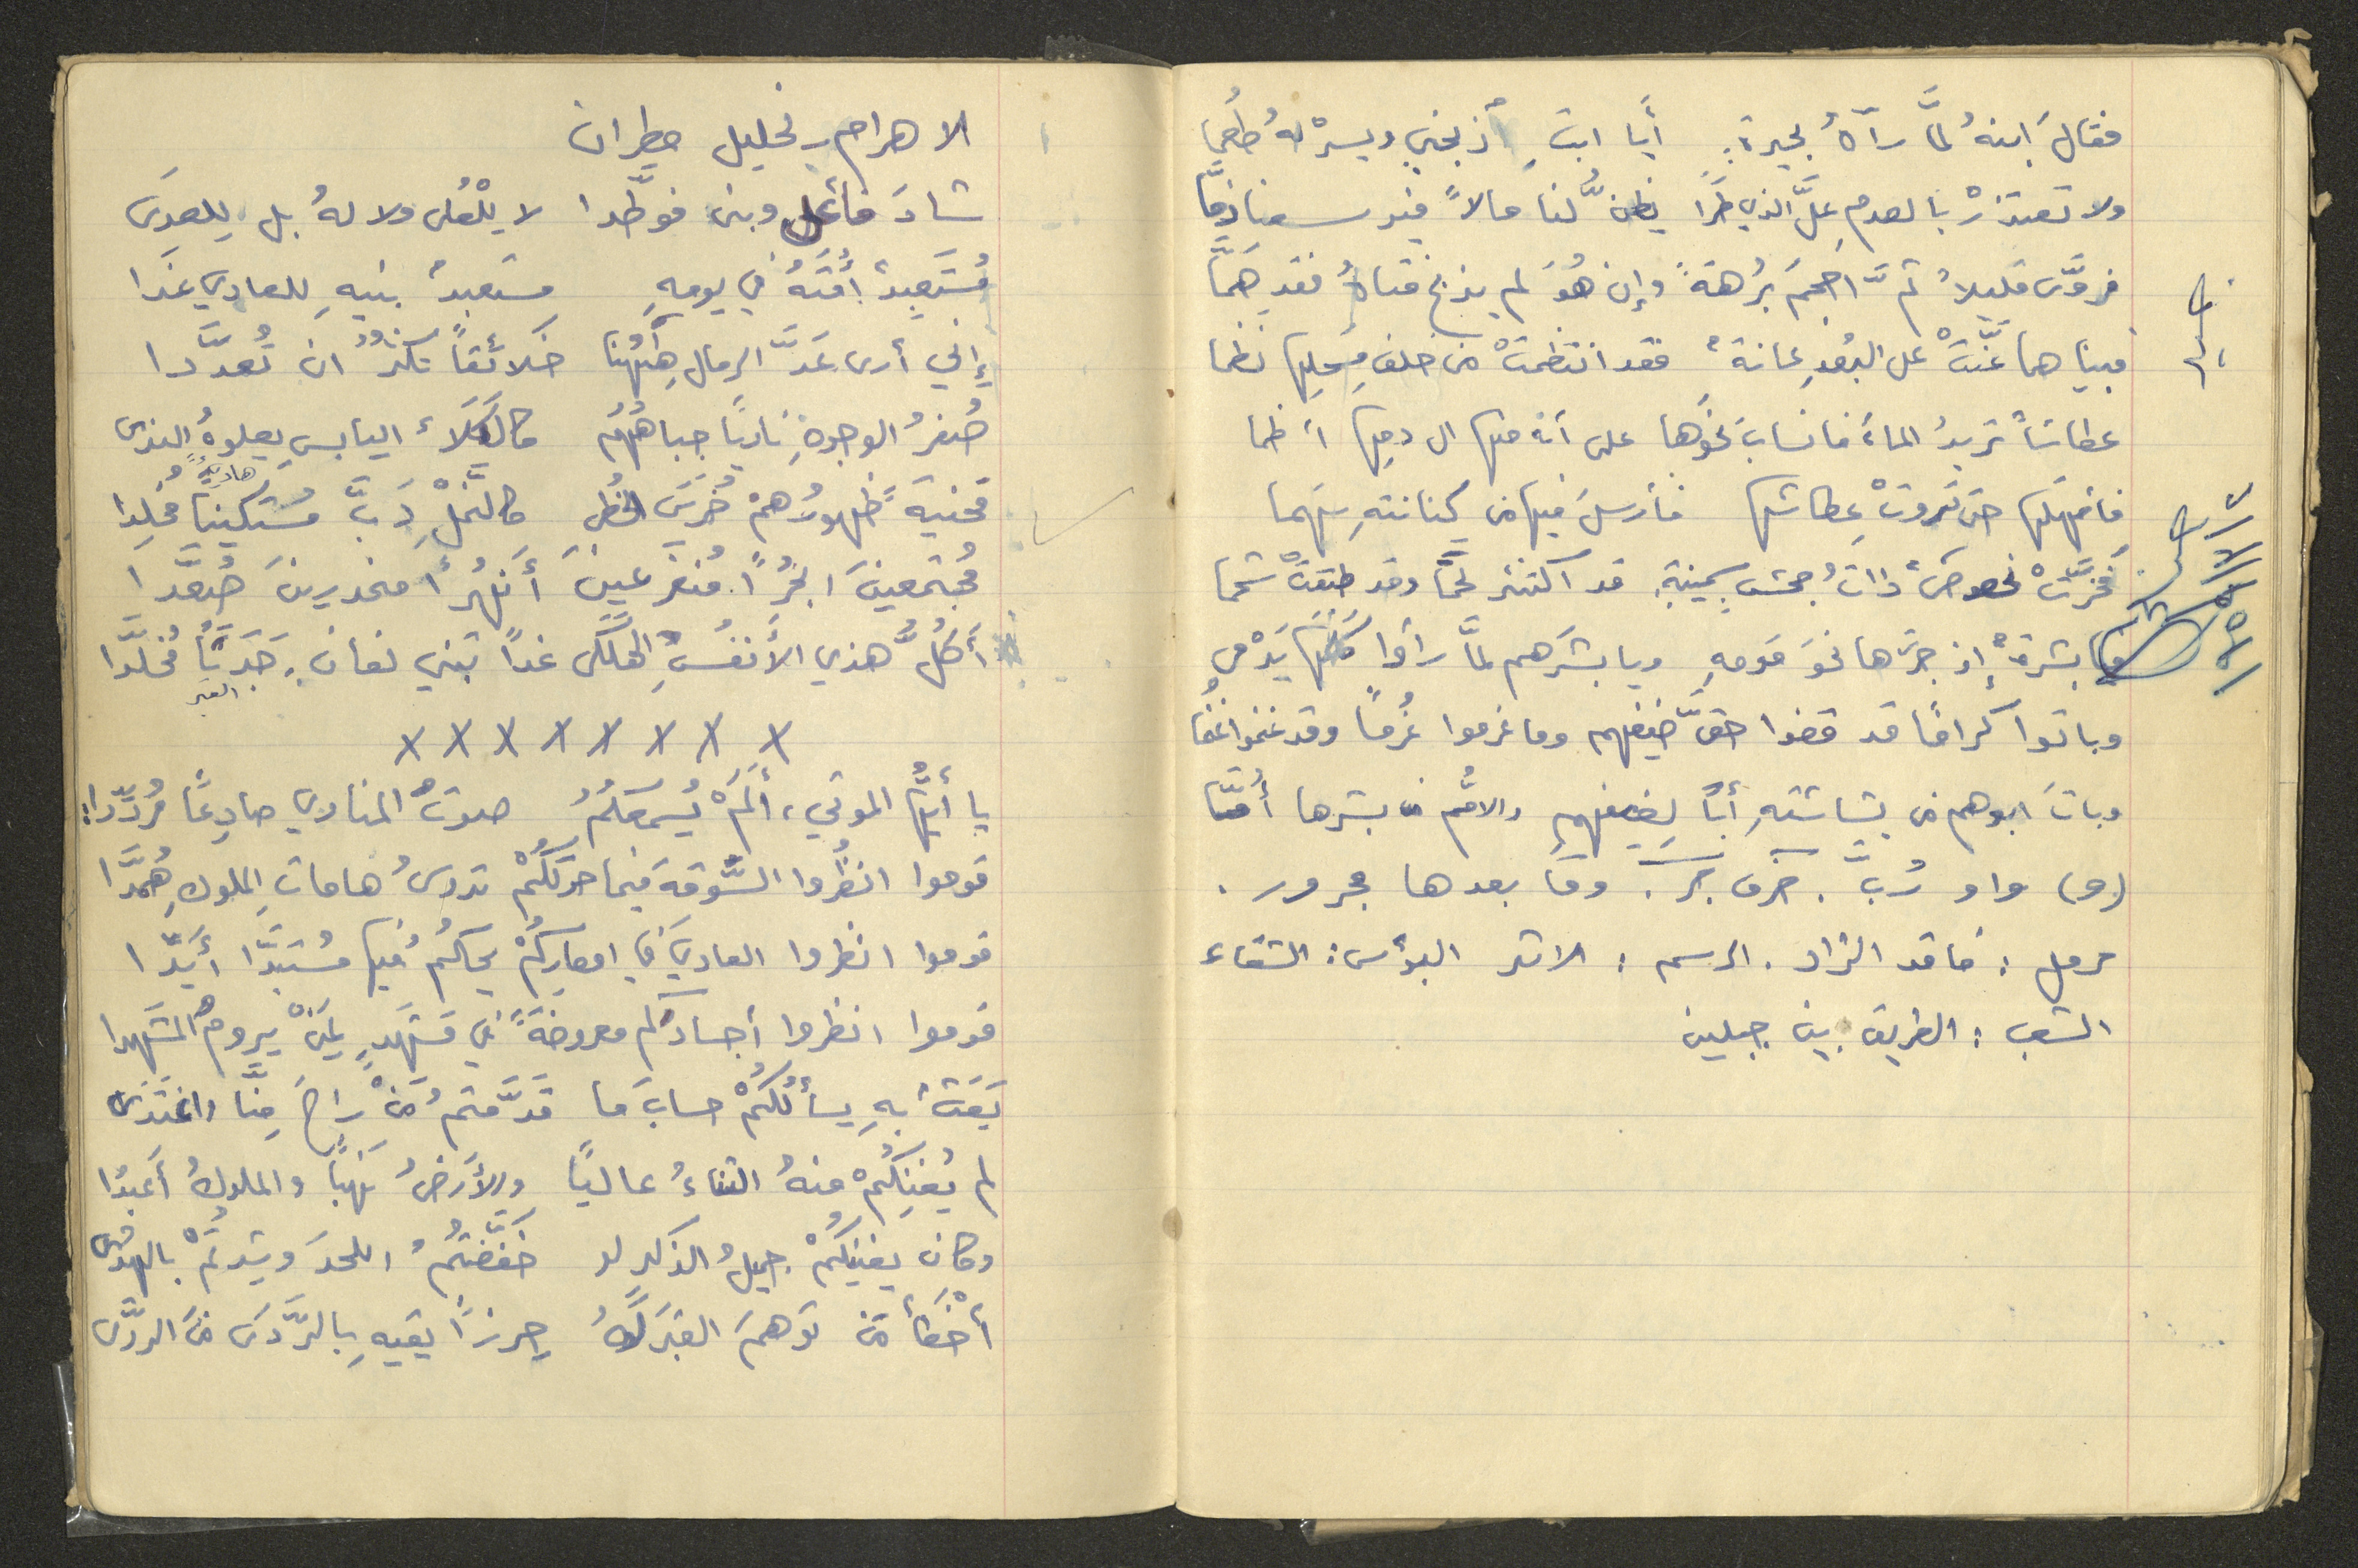 فقالَ ابنهُ لمَّا رآهُ بحيرةٍ أيا ابتِ اذبحني ويسرْ لهُ طُعما
ولا تعتذرْ بالعدمِ علَّ الذي طَرَا يظنُّ لنا مالاً فيوسعنا ذمَّا
فروَّى قليلاً ثمَّ احجمَ بُرهَةً وإن هُوَ لم يذبح فتاهُ فقد همَّا
فبينا هما عَنَّتْ على البُعدِ عانةٌ فقد انتظمتْ من خلف مِسحلِها نظما
عطاشاً تريدُ الماءَ فانسابَ نحوَها على أنه منها الى دمِها أظما
فأمهلَها حتى تروتْ عِطاشها فأرسلَ فيها من كِنانتهِ سهما
فخرَّتْ نحوصٌ ذاتُ جحشٍ سمينةٍ قد اكتنزتْ لحمًا وقد طبقتْ شحما
فيا بشرهُ إذ جرَّها نحوَ قومهِ ويا بشرَهم لمَّا رأوا كَلْمَها يَدْمى
وباتوا كرامًا قد قضوا حقَّ ضيفهم وما غرموا غُرمًا وقد غنموا غُنما
وباتَ ابوهم من بشاشتهِ أبًا لِضيفهمِ والامُّ من بشرها أُمّا
(و) واو رُبَّ. حرف جر. وما بعدها مجرور.
مرمل : فاقد الزاد. الرسم : الاثر البؤس : الشقاء
الشعب : الطريق بين جبلين
الاهرام - لخليل مطران
شادَ فأعلى وبنى فوطَّدا لا لِلْعُلى ولا لهُ بل لِلعِدَى
مُستَعبِدٌ أُمَّتَهُ في يومِهِ مستعبدٌ بنيهِ للعادي غدَا
إني أرى عَدَّ الرمالِ هٰهُنا خلائقاً تكثُرُ ان تُعدَّدا
صُفرُ الوجوهِ ناديًا جباهُهُم كالكَلأ اليابسِ يعلوهُ الندى
محنيةً ظهورُهمْ خُرسَ الخُطى كالنَّملِ دَبَّ مستكينًا مُخلِدا
هادئٌ
مُجتمعينَ ابحُرًا مُنفرعينَ أنهُرًا منحدرينَ صُعَّدا
أكُلُّ هذي الأنفُسِ الهلكى غدًا تبني لفانٍ جَدَثًا مُخلَّدا
القبر
x x x x x x x x
يا أيُّها الموتى، ألَمْ يُسمِعكُمُ صوتُ المنادي صادِعًا مُردِّدا:
قوموا انظُروا السُّوقةَ فيما حولَكُمْ تدوسُ هاماتِ الملوكِ هُمَّدا
قوموا انظروا العاديَ في امصارِكُمْ يحكمُ فيها مستبدًّا أيِّدا
قوموا انظروا أجسادَكم معروضةً في مَشهَدٍ لِمَنْ يرومُ المشهدا
يَعبَثُ بهِ يسألُكُمْ حسابَ ما قدَّمتمُ مَنْ راحَ مِنَّا واغتدى
لم يُغنِكُمْ منهُ البناءُ عاليًا والأرضُ نهبًا والملوكُ أعبُدا
وكانَ يغنيكُمْ جميلُ الذكرِ لو خفَّضتُمُ اللحدَ وشدتُمْ بالهدى
أخطأَ مَن توهمَ القبرَ لهُ حِرزًا يقيهِ بالرَّدى مِنَ الردى